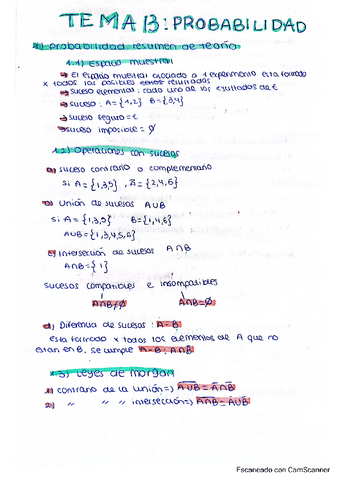 TEMA 13: PROBABILIDAD
1) probabilidad resumen de teoría
1.1) Espacio muestral
El espacio muestral asociado a 1 experimento esta formado
x todos los posibles estos resultados
suceso elemental: cada uno de los resultados de E
suceso: A={1,2} B={3,4}
suceso seguro = E
suceso imposible = ∅
1.2) Operaciones con sucesos
a) suceso contrario o complementario
si A = {1,3,5}, A̅ = {2,4,6}
b) Unión de sucesos A∪B
si A = {1,3,5} B = {1,4,6}
A∪B = {1,3,4,5,6}
c) Intersección de sucesos A∩B
A∩B = {1}
sucesos compatibles e incompatibles
A∩B≠∅ A∩B=∅
d) Diferencia de sucesos: A-B
Esta formado x todos los elementos de A que no
estan en B. se cumple A-B = A∩B̅
1.3) Leyes de morgan
1) contrario de la unión => A̅∪̅B̅ = A̅∩B̅
2) " " " intersección => A̅∩̅B̅ = A̅∪B̅
Escaneado con CamScanner